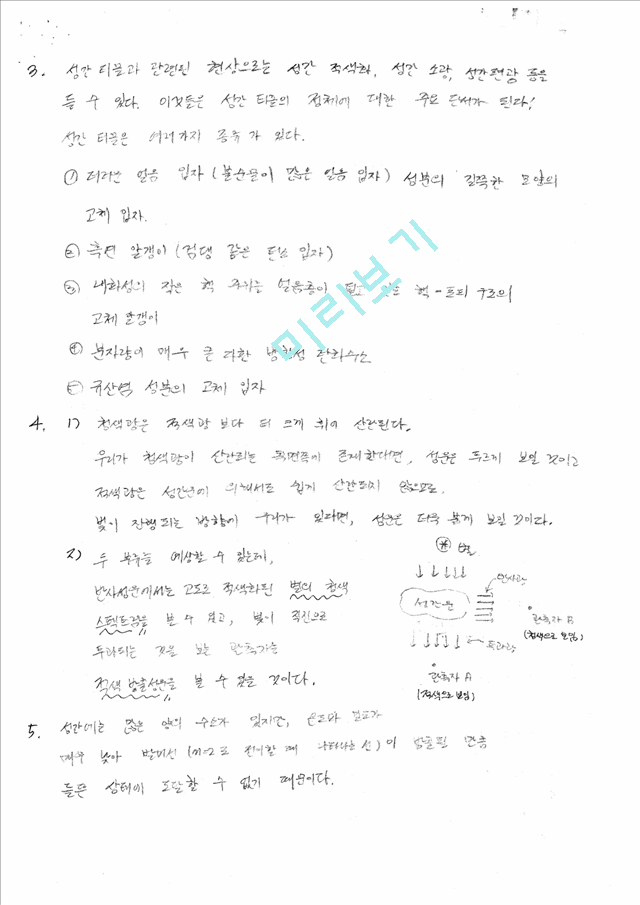 3. 성간 티끌과 관련된 현상으로는 성간 적색화, 성간 소광, 성간편광 등을
들 수 있다. 이것들은 성간 티끌의 정체에 대한 주요 단서가 된다!
성간 티끌은 여러가지 종류가 있다.
① 더러운 얼음 입자 (불순물이 많은 얼음 입자) 성분의 길쭉한 모양의
고체 입자.
② 흑연 알갱이 (검댕 같은 탄소 입자)
③ 내화성의 작은 핵 주위는 얼음층이 덮고 있는 핵-외피 구조의
고체 알갱이
④ 분자량이 매우 큰 다환 방향성 탄화수소
⑤ 규산염 성분의 고체 입자
4. 1) 청색광은 적색광 보다 더 크게 휘어 산란된다.
우리가 청색광이 산란되는 측면쪽에 존재한다면, 성운은 푸르게 보일 것이고
적색광은 성간운에 의해서도 쉽게 산란되지 않으므로,
빛이 진행되는 방향에 우리가 있다면, 성운은 더욱 붉게 보일 것이다.
2) 두 부류를 예상할 수 있는데,
반사성운에서는 고도로 적색화된 별의 청색
스펙트럼을 볼 수 있고, 빛이 직진으로
투과되는 것을 보는 관측자는
적색 방출성운을 볼 수 있을 것이다.
별
성간운
반사광
관측자 B
(청색으로 보임)
투과광
관측자 A
(적색으로 보임)
5. 성간에는 많은 양의 수소가 있지만, 온도와 밀도가
매우 낮아 발머선 (n=2로 전이할 때 나타나는 선)이 방출될 만큼
들뜬 상태에 도달할 수 없기 때문이다.
미리보기